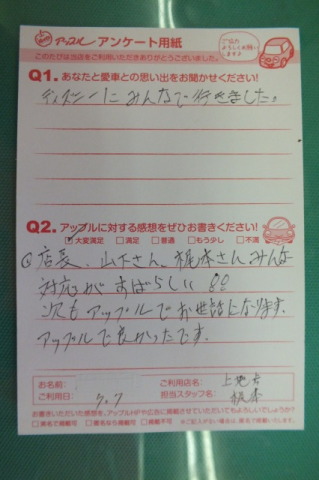 アップル アンケート用紙
ご協力よろしくお願いします♪
このたびは当店をご利用いただきありがとうございました。
Q1. あなたと愛車との思い出をお聞かせください!
ディズニーにみんなで行きました。
Q2. アップルに対する感想をぜひお書きください!
☑大変満足 □満足 □普通 □もう少し □不満
店長、山下さん、梶本さんみんな
対応がすばらしい!!
次もアップルでお世話になります。
アップルで良かったです。
お名前: ご利用店名: 上地店
ご利用日: 7.7 担当スタッフ名: 梶本
お書きいただいた感想を、アップルHPや広告に掲載させていただいてもよろしいでしょうか?
□実名で掲載可 □匿名なら掲載可 □掲載不可 ※ご記入がない場合は、匿名で掲載いたします。